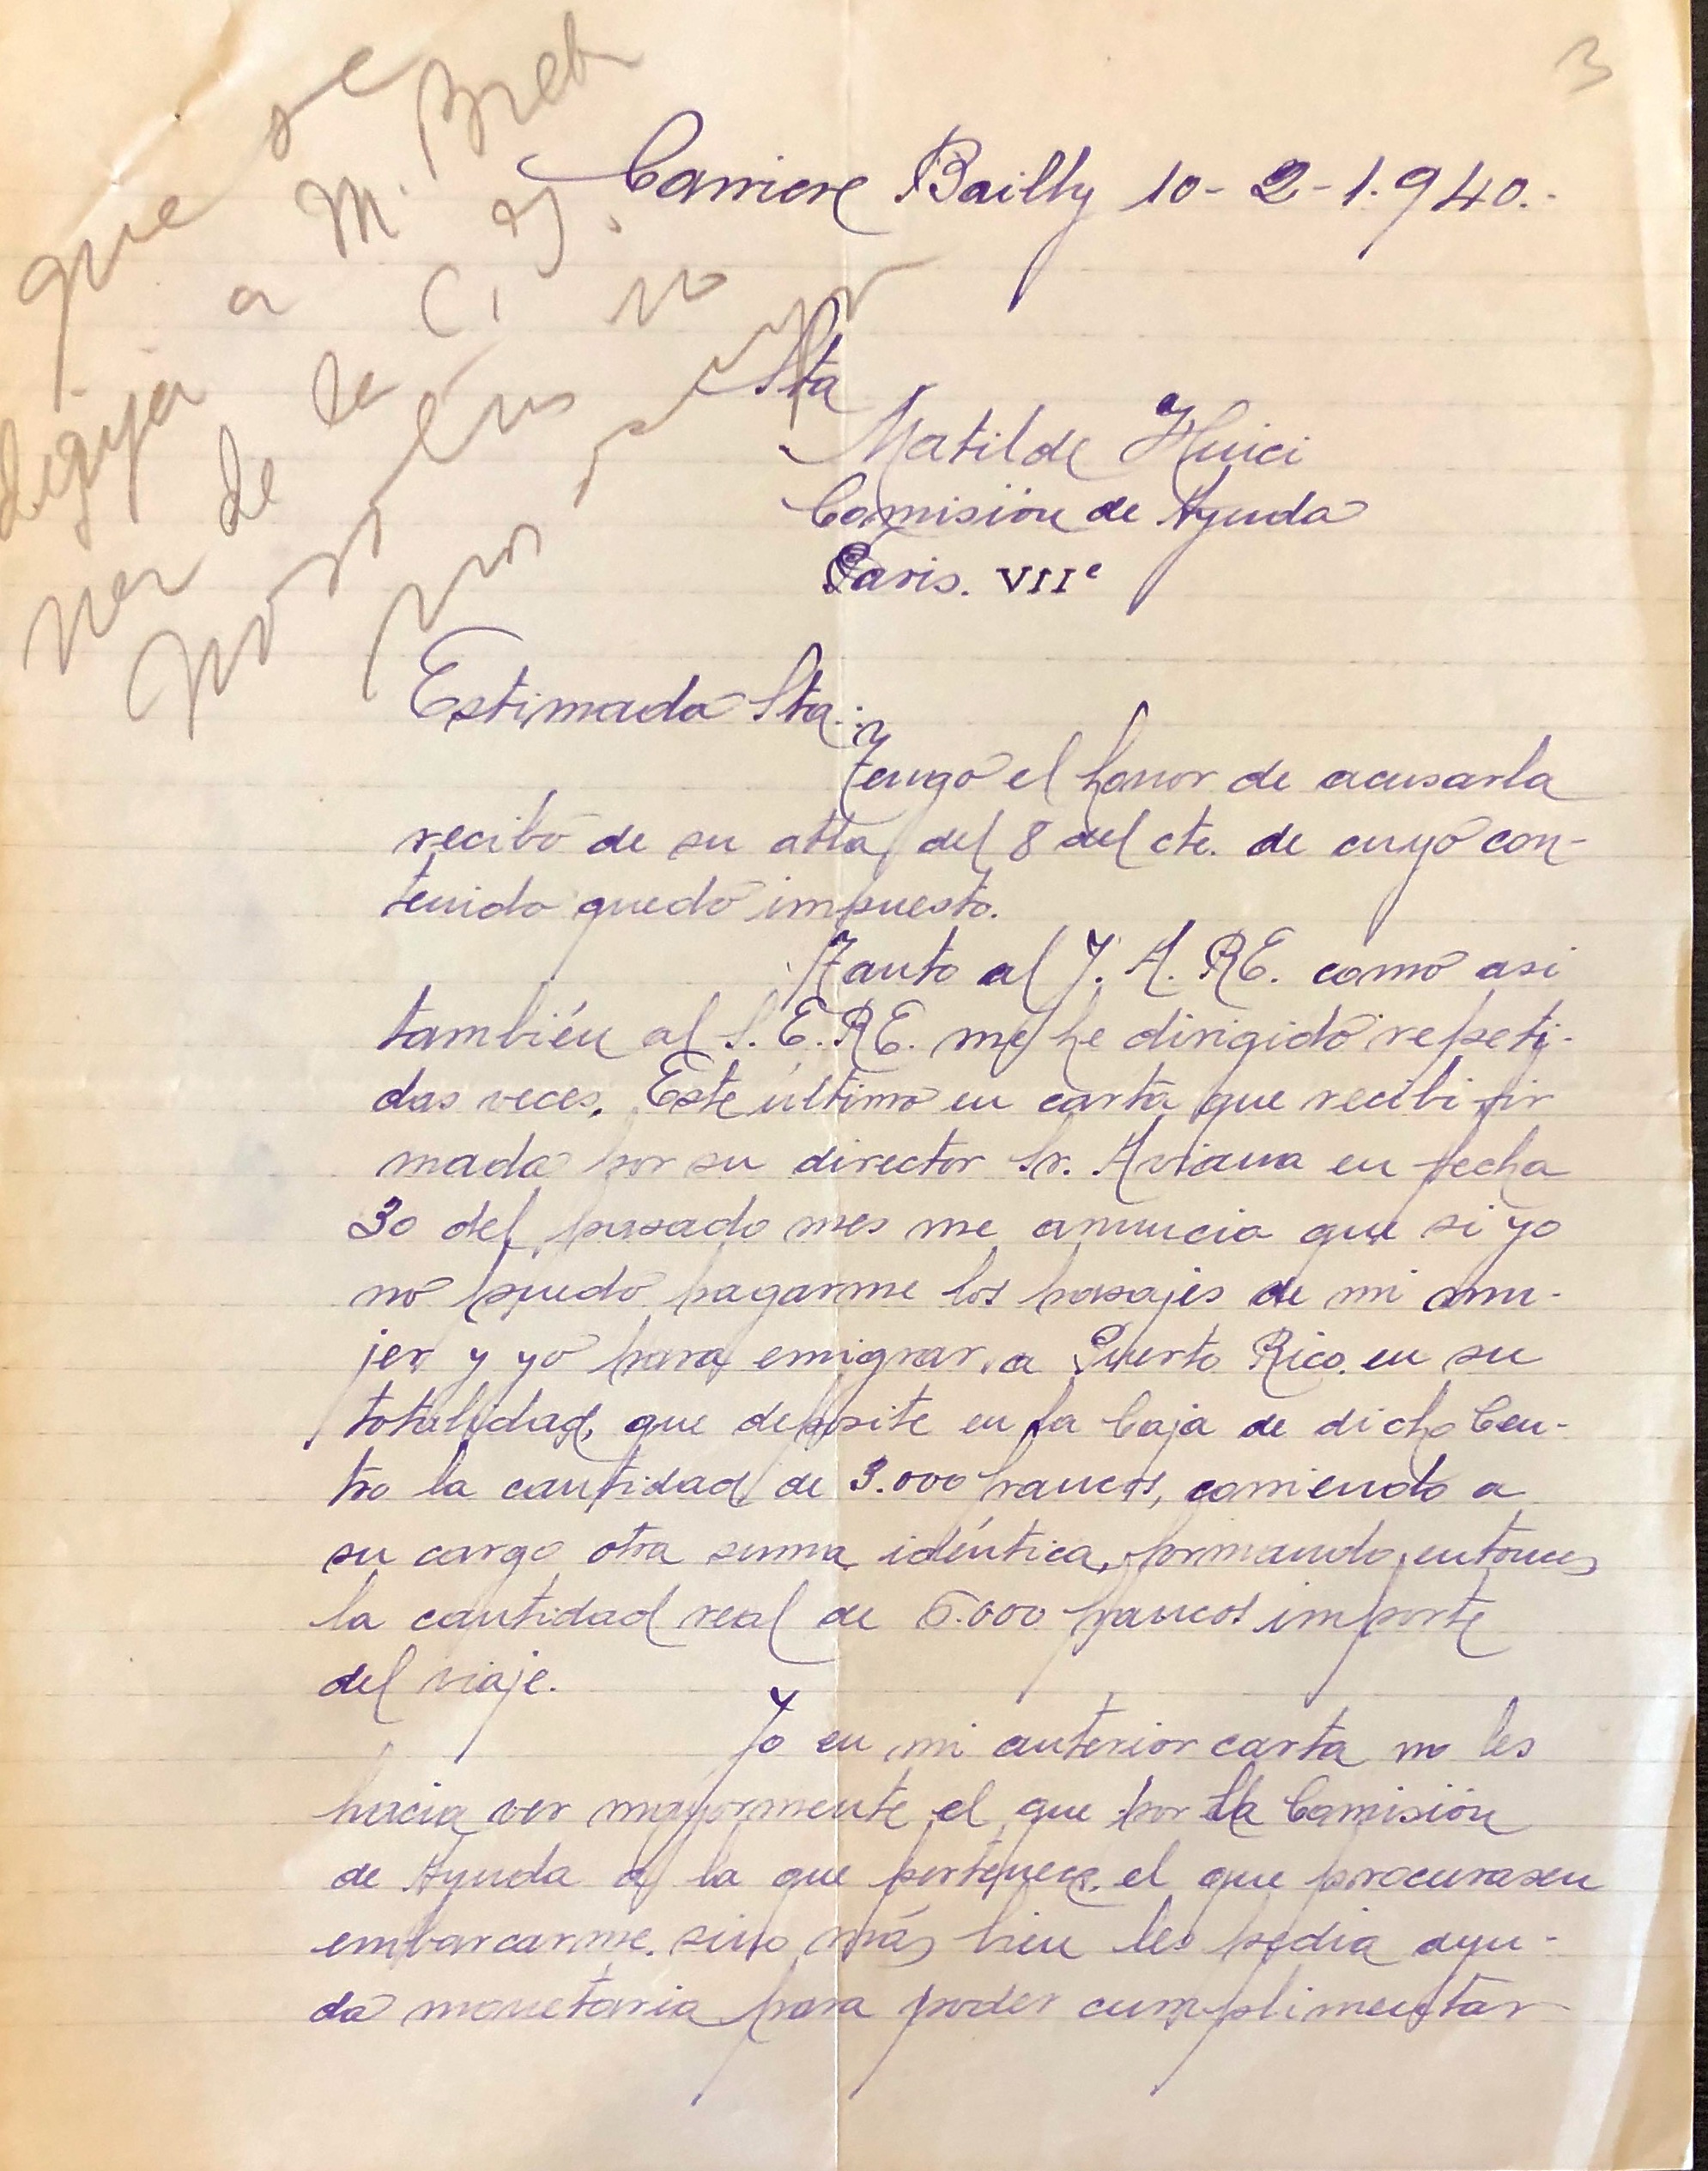 3
que se
dirija a M. Breb
ver de la C. I.
nosotros no
Carriere Bailly 10-2-1.940.-
Sta
Matilde Huici
Comisión de Ayuda
Paris. VIIe
Estimada Sta.:
Tengo el honor de acusarla
recibo de su atta, del 8 del cte. de cuyo con-
tenido quedo impuesto.
Tanto al J. A. RE. como asi
también al S. E. RE. me he dirigido repeti-
das veces. Este último en carta que recibi fir
mada por su director Sr. en fecha
30 del pasado mes me anuncia que si yo
no puedo pagarme los pasajes de mi mu-
jer y yo para emigrar a Puerto Rico en su
totalidad, que deposite en la Caja de dicho Cen-
tro la cantidad de 3.000 francos, corriendo a
su cargo otra suma idéntica, formando entonces
la cantidad real de 6.000 francos importe
del viaje.
Yo en mi anterior carta no les
hacia ver mayormente el que por la Comisión
de Ayuda a la que pertenece, el que procurasen
embarcarme, sino más bien les pedia ayu-
da monetaria para poder cumplimentar